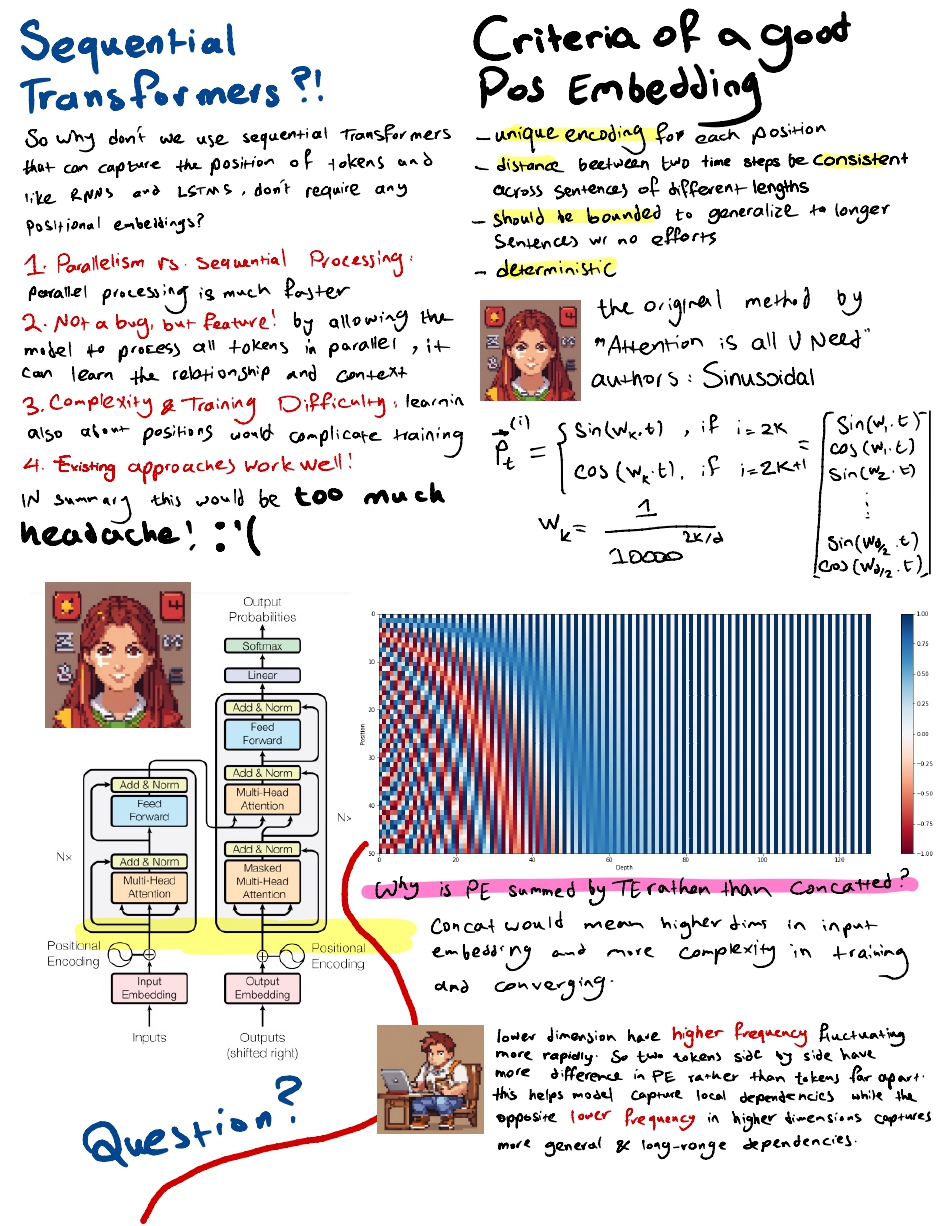 Sequential
Transformers?!
So why don't we use sequential Transformers
that can capture the position of tokens and
like RNNs and LSTMs, don't require any
positional embeddings?
1. Parallelism vs. Sequential Processing:
Parallel processing is much faster
2. Not a bug, but feature! by allowing the
model to process all tokens in parallel, it
can learn the relationship and context
3. Complexity & Training Difficulty: learnin
also about positions would complicate training
4. Existing approaches work well!
IN summary this would be too much
headache! :'(
Criteria of a good
Pos Embedding
- unique encoding for each position
- distance beetween two time steps be consistent
across sentences of different lengths
- should be bounded to generalize to longer
sentences w/ no efforts
- deterministic
the original method by
"Attention is all U Need"
authors: Sinusoidal
P_t^(i) = { sin(w_k.t), if i=2k
cos(w_k.t), if i=2k+1
= [ sin(w_1.t)
cos(w_1.t)
sin(w_2.t)
⋮
sin(w_d/2.t)
cos(w_d/2.t) ]
w_k = 1 / 10000^2k/d
Output
Probabilities
Softmax
Linear
Add & Norm
Feed
Forward
Add & Norm
Multi-Head
Attention
Add & Norm
Masked
Multi-Head
Attention
N×
Add & Norm
Feed
Forward
Add & Norm
Multi-Head
Attention
N×
Positional
Encoding
Positional
Encoding
Input
Embedding
Output
Embedding
Inputs
Outputs
(shifted right)
Position
0
10
20
30
40
50
0
20
40
60
80
100
120
Depth
1.00
0.75
0.50
0.25
0.00
−0.25
−0.50
−0.75
−1.00
Why is PE summed by TE rathen than Concatted?
Concat would mean higher dims in input
embedding and more complexity in training
and converging.
lower dimension have higher frequency fluctuating
more rapidly. So two tokens side by side have
more difference in PE rather than tokens far apart.
this helps model capture local dependencies while the
opposite lower frequency in higher dimensions captures
more general & long-range dependencies.
Question?